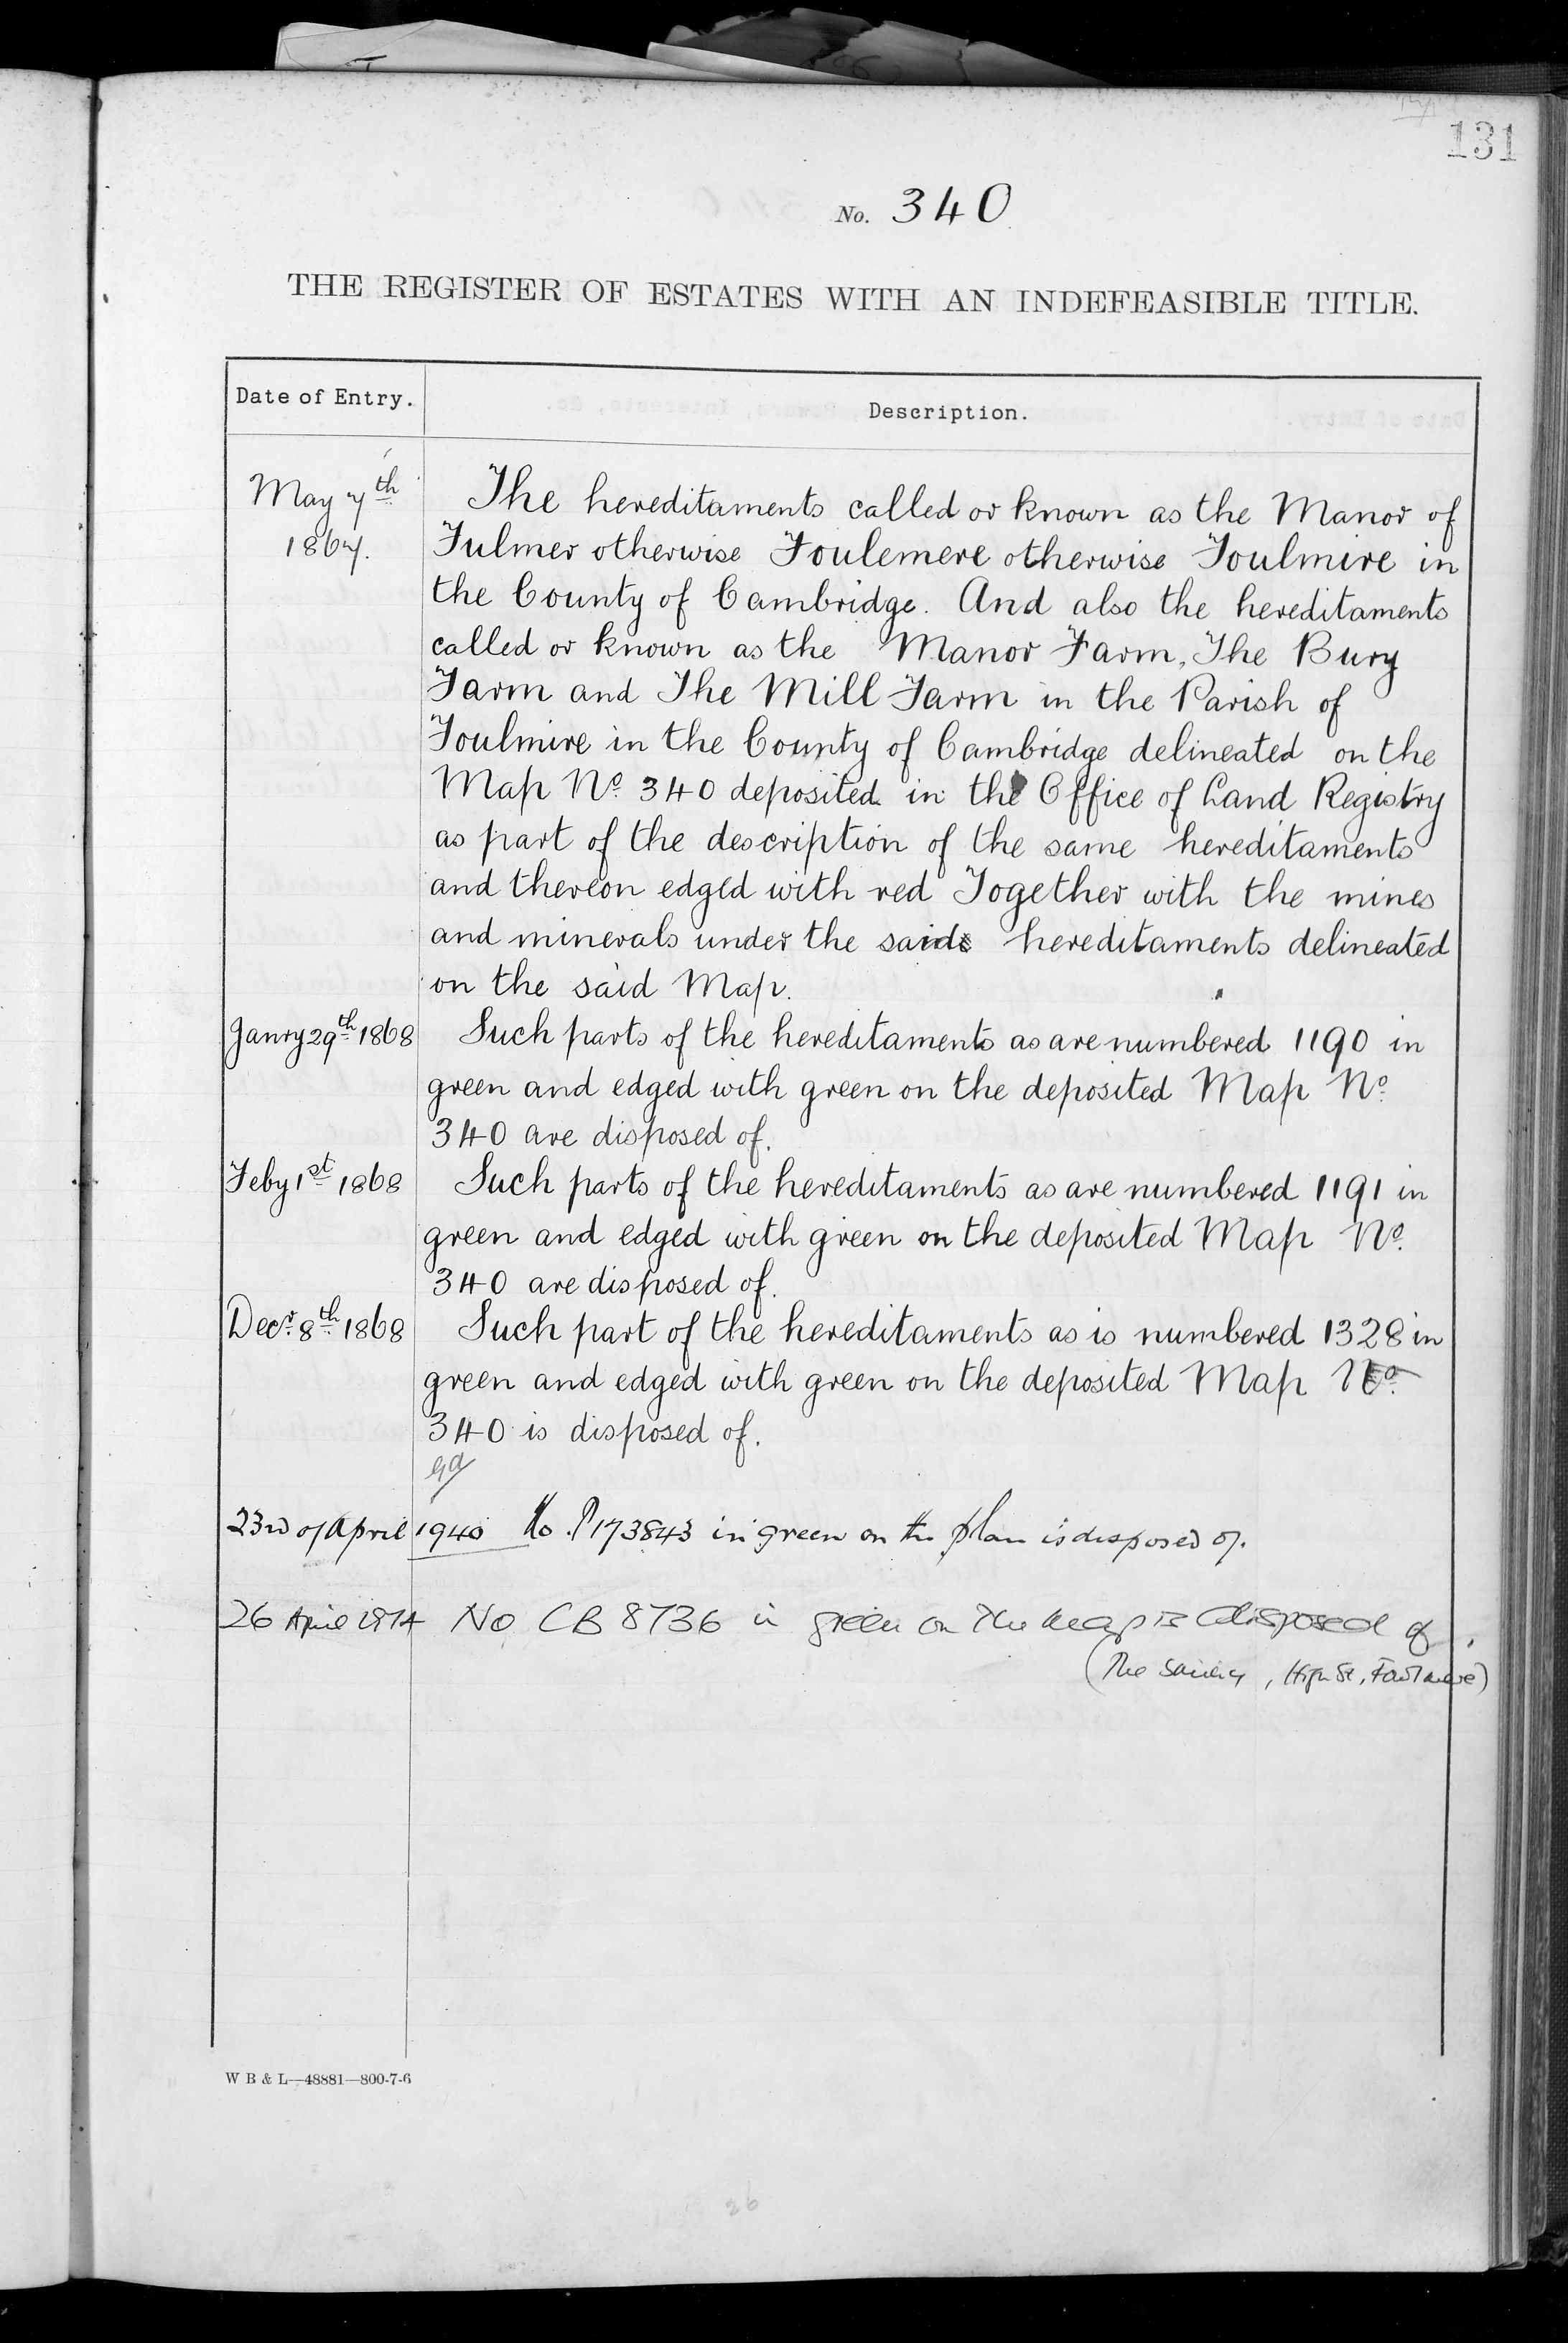 131
No. 340
THE REGISTER OF ESTATES WITH AN INDEFEASIBLE TITLE.
Date of Entry.
Description.
May 7th 1867.
The hereditaments called or known as the Manor of
Fulmer otherwise Foulemere otherwise Foulmire in
the County of Cambridge. And also the hereditaments
called or known as the Manor Farm, The Bury
Farm and The Mill Farm in the Parish of
Foulmire in the County of Cambridge delineated on the
Map No. 340 deposited in the Office of Land Registry
as part of the description of the same hereditaments
and thereon edged with red Together with the mines
and minerals under the said hereditaments delineated
on the said Map.
Janry 29th 1868 Such parts of the hereditaments as are numbered 1190 in
green and edged with green on the deposited Map No.
340 are disposed of.
Feby 1st 1868 Such parts of the hereditaments as are numbered 1191 in
green and edged with green on the deposited Map No.
340 are disposed of.
Decr. 8th 1868 Such part of the hereditaments as is numbered 1328 in
green and edged with green on the deposited Map No.
340 is disposed of.
23rd of April 1940 No. P173843 in green on the plan is disposed of.
26 April 1974 No CB 8736 in green on the map is disposed of.
(The , High St, Fowlmere)
W B & L—48881—800-7-6
26